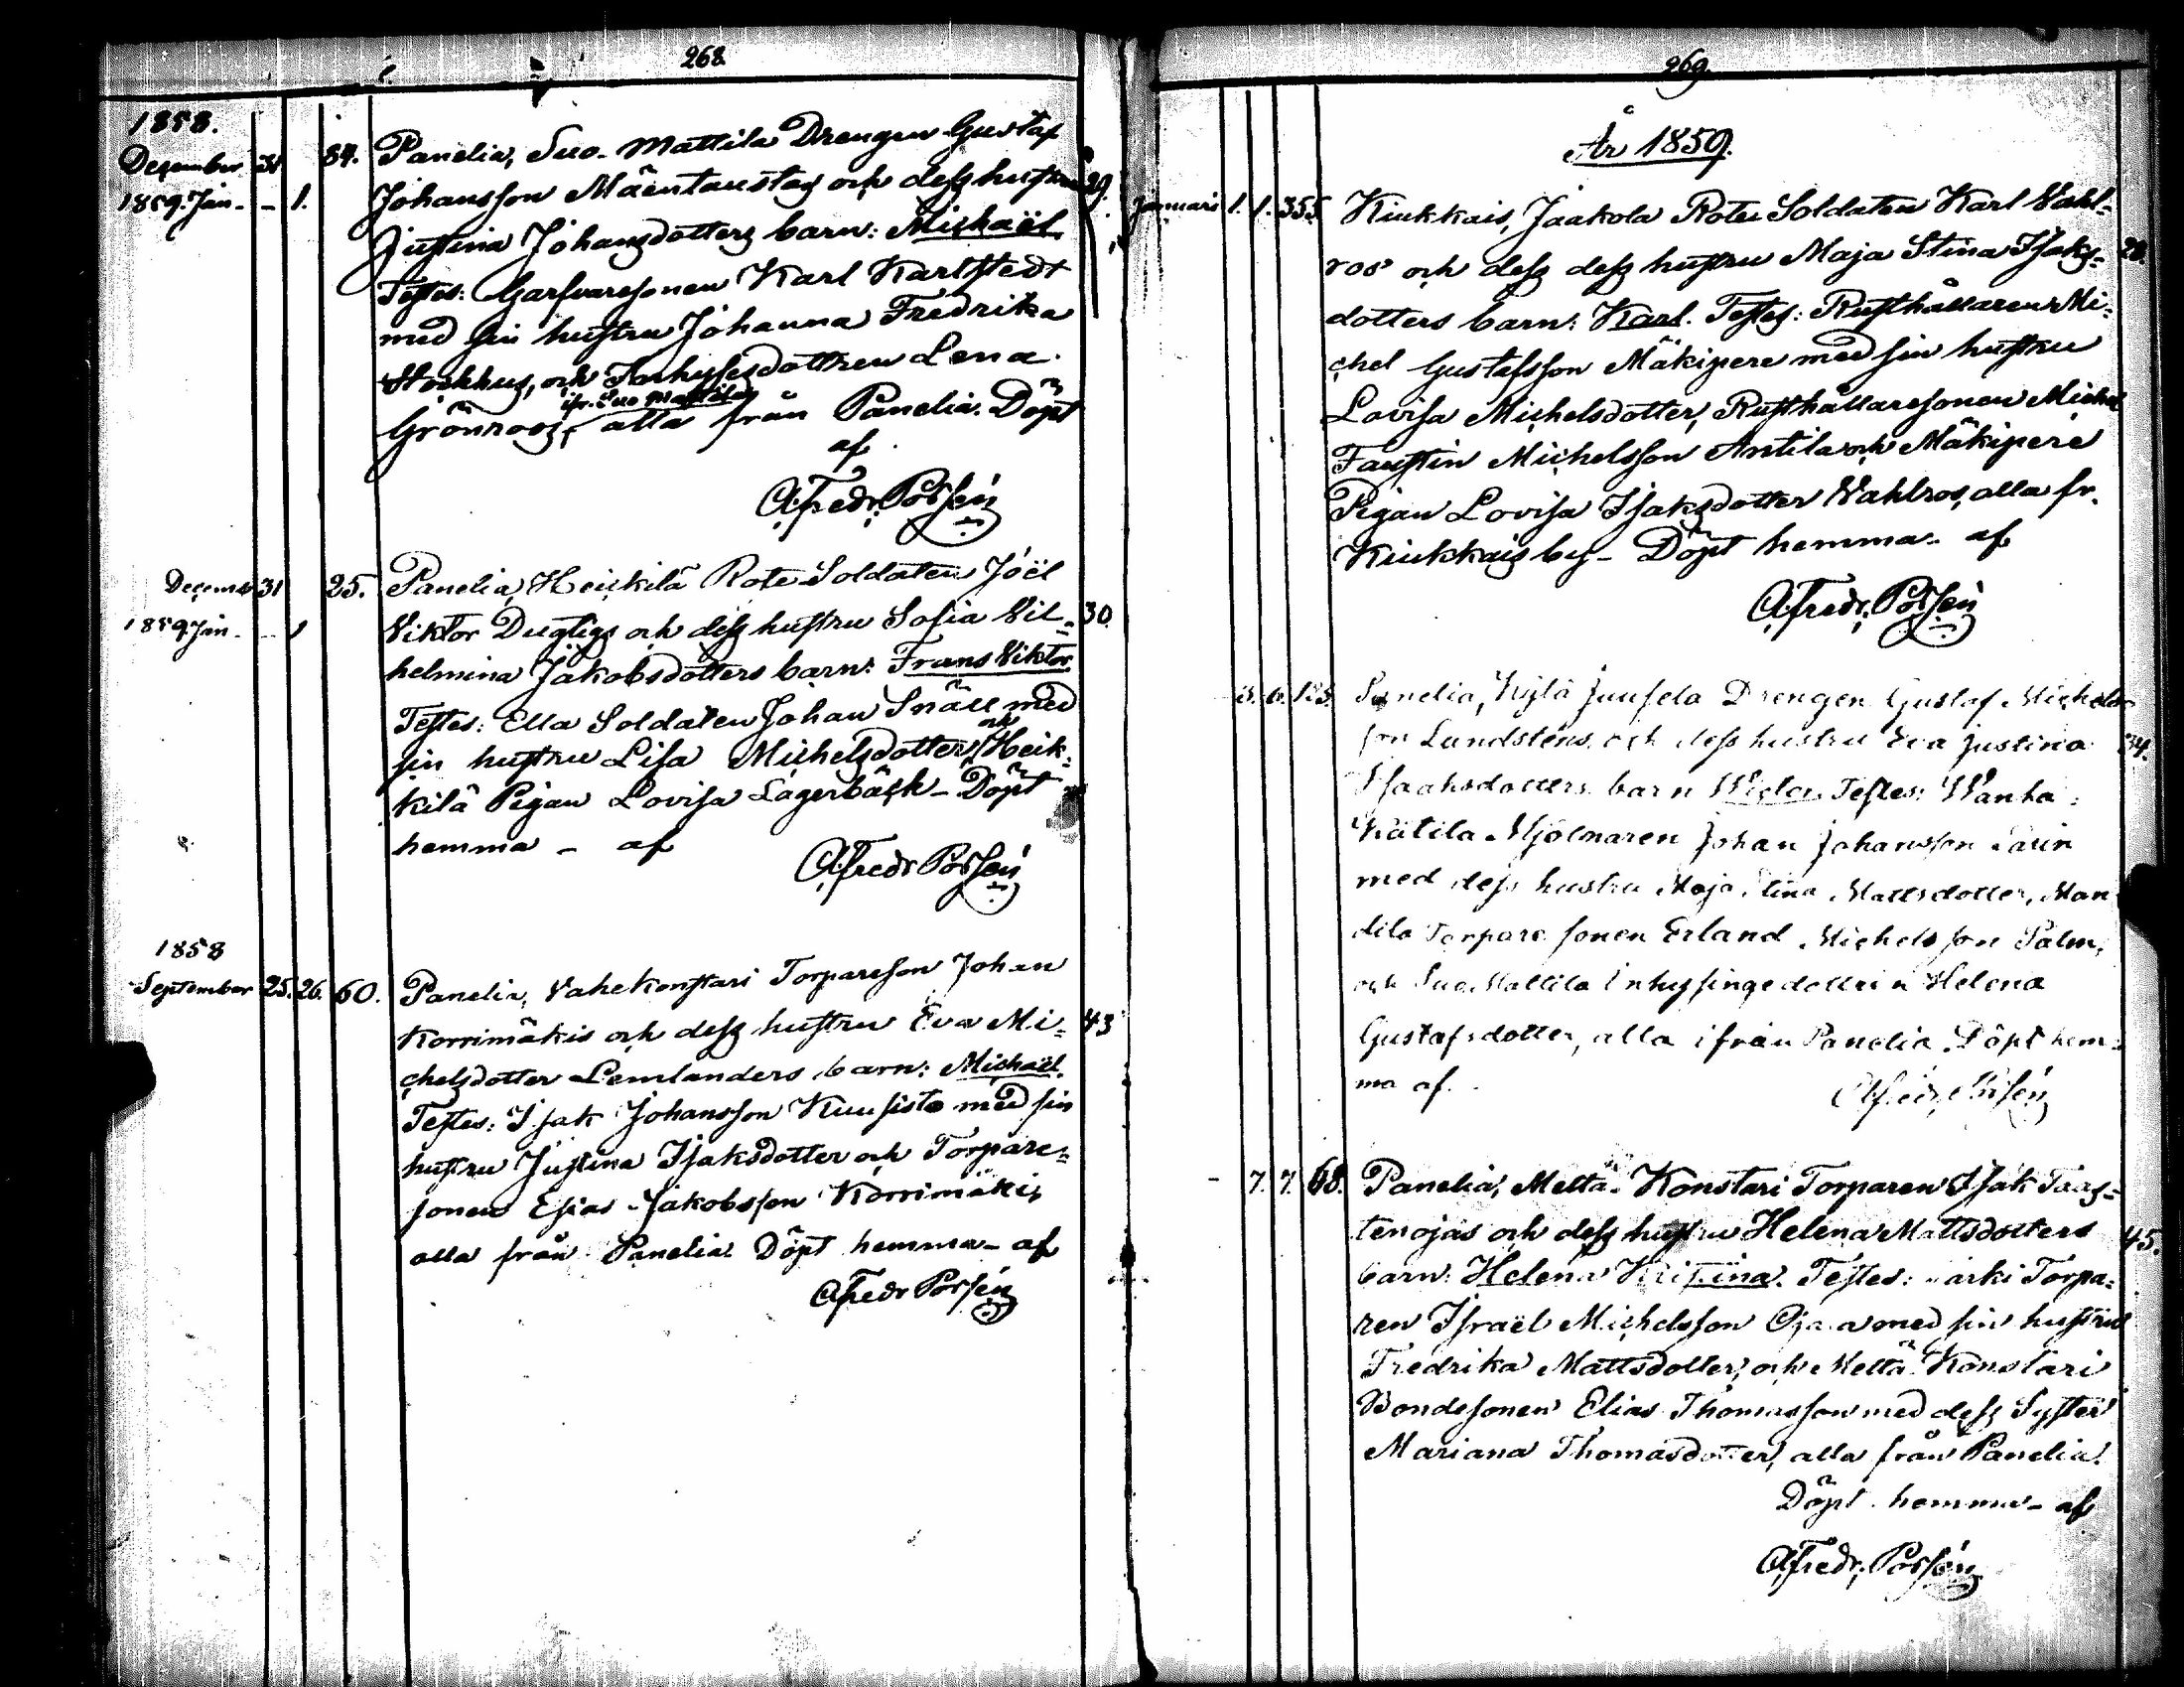 268
1858.
December 31 84. Panelia, Suo-Mattila Drengen Gustaf
1859. Jan. - 1. Johansson Mäentaustas och dess hustru 29.
Justina Johansdotters barn: Michaël.
Testes: Garfvaresonen Karl Karlstedt
med sin hustru Johanna Fredrika
Stockkus, och Inhysesdottren Lena
ifr. Suo Mattila
Grönroos, alla från Panelia. Döpt
af
A. Fredr. Porsén
Decemb 31 25. Panelia, Heickilä Rote Soldaten Joël
1859 Jan. - 1 Viktor Dugtigs och dess hustru Sofia Vil- 30.
helmina Jakobsdotters barn: Frans Viktor.
Testes: Ella Soldaten Johan Snäll med
sin hustru Lisa Michelsdotter, och Heik-
kilä Pigan Lovisa Lagerbäck - Döpt
hemma - af
A. Fredr Porsén
1858
September 25. 26. 60. Panelia, Vahekonstari Torpareson Johan
Korrimäkis och dess hustru Eva Mi- 43
chelsdotter Lemlanders barn: Michaël.
Testes: Isak Johansson Kuusisto med sin
hustru Justina Isaksdotter och Torpare-
sonen Esias Jakobsson Korrimäki,
alla från Panelia. Döpt hemma - af
A. Fredr Porsén
269.
År 1859.
Januari 1. 1. 355. Kiukkais, Jaakola Rote Soldaten Karl Vahl-
ros' och dess dess hustru Maja Stina Isaks- 28.
dotters barn: Karl. Testes: Rusthållaren Mi-
chel Gustafsson Mäkipere med sin hustru
Lovisa Michelsdotter, Rusthållaresonen Michel
Faustin Michelsson Antila och Mäkipere
Pigan Lovisa Isaksdotter Vahlros, alla fr.
Kiukkais by - Döpt hemma - af
A. Fredr. Porsén
3. 6. 125. Panelia, Kylä Juusela Drengen Gustaf Michels-
son Lundsténs och dess hustru Eva Justina 34.
Isaaksdotters barn Testes: Wanha-
Kätilä Mjölnaren Johan Johansson
med dess hustru Maja Stina Mattsdotter, Man
dila Torpare sonen Erland Michelsson Palm,
och Suo Mattila Inhysingedottren Helena
Gustafsdotter, alla ifrån Panelia. Döpt hem-
ma af.
A. Fredr. Porsén
- 7. 7. 68. Panelia, Mettä-Konstari Torparen Isak Taas-
tenojas och dess hustru Helena Mattsdotters 45.
barn: Helena Kristina. Testes: Torpa-
ren Israël Michelsson Ojala med sin hustru
Fredrika Mattsdotter, och Mettä-Konstari
Bondesonen Elias Thomasson med dess Syster
Mariana Thomasdotter, alla från Panelia.
Döpt hemma - af
A. Fredr. Porsén